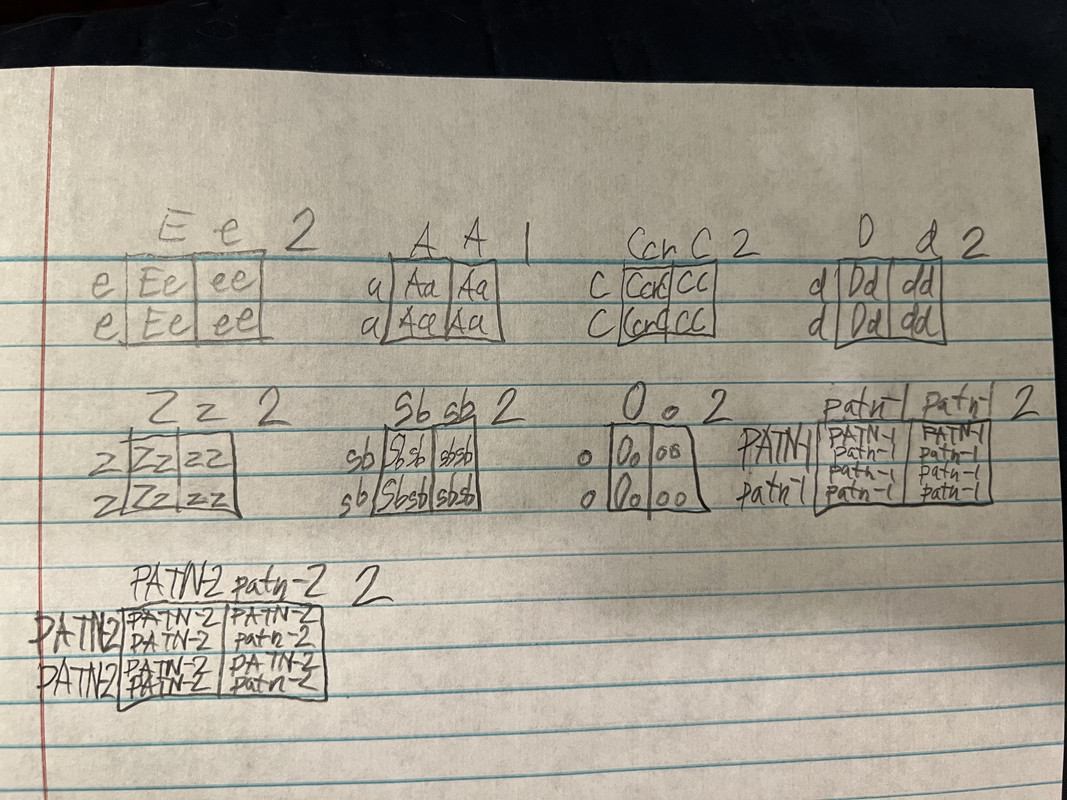 E e 2 A A 1 Ccr C 2 D d 2
e Ee ee a Aa Aa C CcrC CC d Dd dd
e Ee ee a Aa Aa C CcrC CC d Dd dd
Z z 2 Sb sb 2 O o 2 patn-1 patn-1 2
z Zz zz sb Sbsb sbsb o Oo oo PATN-1 PATN-1 patn-1 PATN-1 patn-1
z Zz zz sb Sbsb sbsb o Oo oo patn-1 patn-1 patn-1 patn-1 patn-1
PATN-2 patn-2 2
PATN-2 PATN-2 PATN-2 PATN-2 patn-2
PATN-2 PATN-2 PATN-2 PATN-2 patn-2